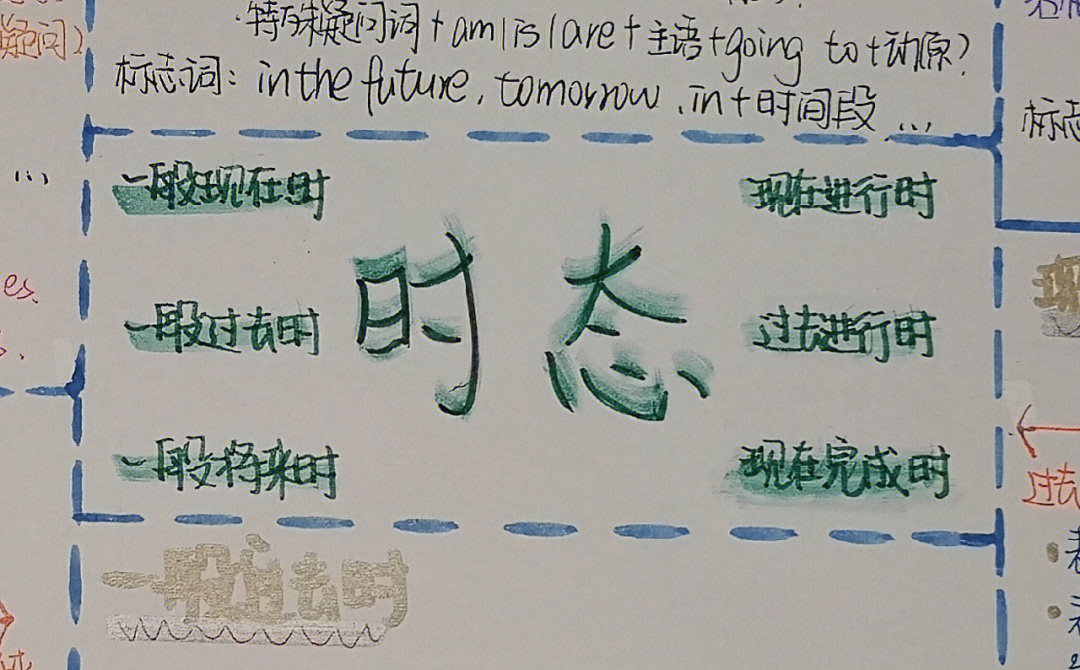 ·特殊疑问词+am/is/are+主语+going to+动原?
疑问)
标志词: in the future, tomorrow, in+时间段 ...
标志
...
一般现在时
现在进行时
时态
es.
现
一般过去时
过去进行时
一般将来时
现在完成时
过去
一般过去时